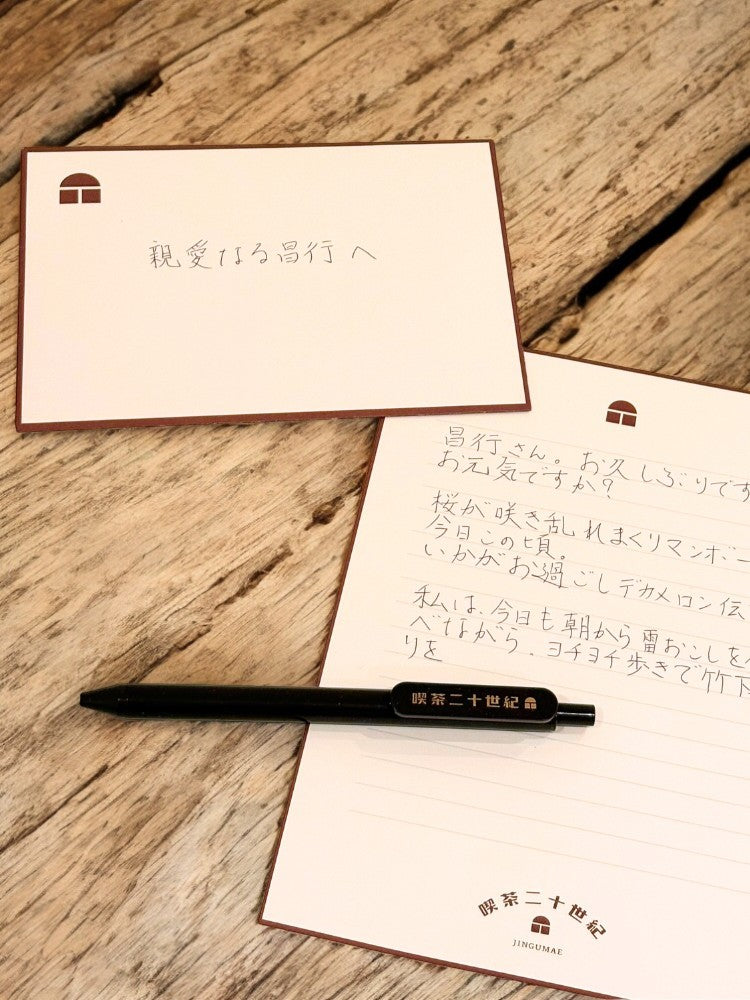 親愛なる昌行へ
昌行さん。お久しぶりです
お元気ですか?
桜が咲き乱れまくりマンボー
今日この頃。
いかがお過ごしデカメロン伝
私は、今日も朝から雷おこしを
べながら、ヨチヨチ歩きで竹下
りを
喫茶二十世紀
喫茶二十世紀
JINGUMAE